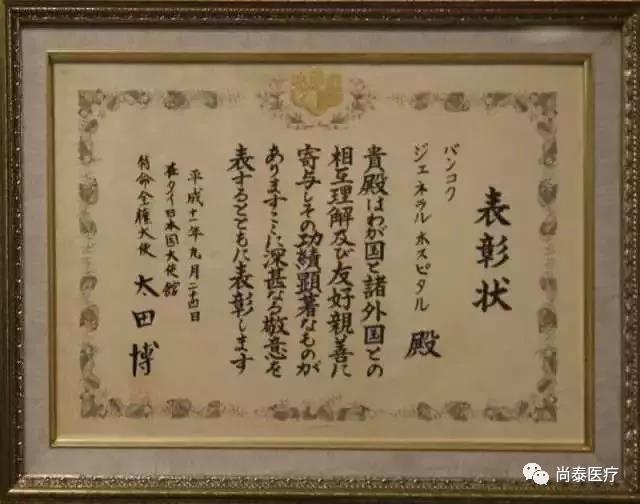 表彰状
バンコク
ジェネラル ホスピタル 殿
貴殿はわが国と諸外国との
相互理解及び友好親善に
寄与しその功績顕著なものが
ありますここに深甚なる敬意を
表するとともに表彰します
平成十一年九月二十四日
在タイ日本国大使館
特命全権大使 太田博
尚泰医疗